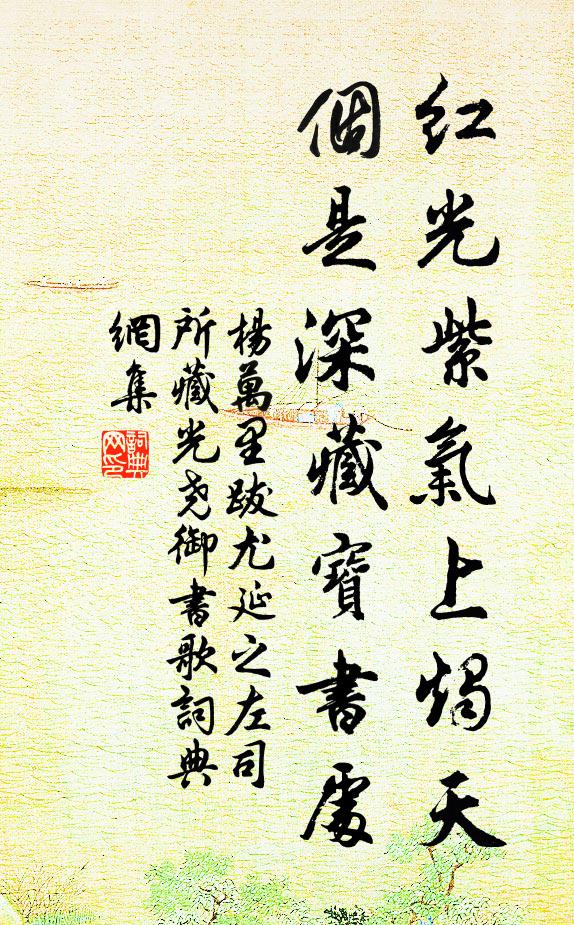 紅光紫氣上燭天
個是深藏寶書處
楊萬里跋尤延之左司
所藏光堯御書歌詞典
網集
詞典
网印